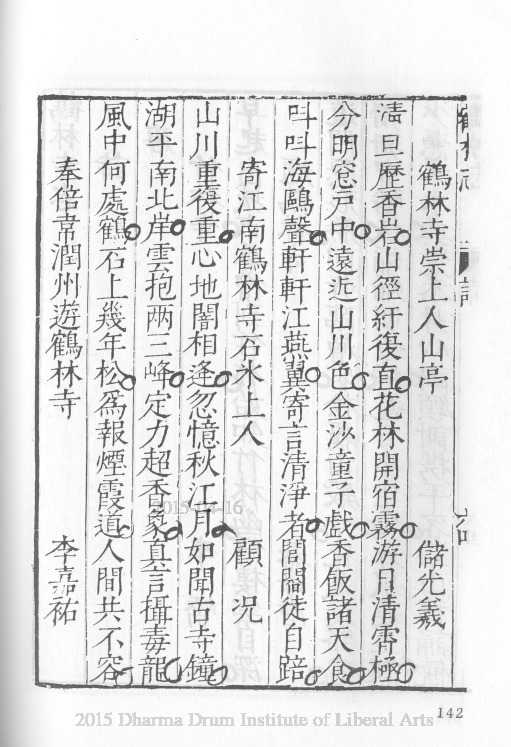 鶴林寺崇上人山亭 儲光羲
清旦歷香岩山徑紆復直花林開宿霧游目清霄極
分明窓戸中遠近山川色金沙童子戲香飯諸天食
呌呌海鷗聲軒軒江燕翼寄言清淨者閭閻徒自踣
寄江南鶴林寺石氷上人 顧況
山川重復重心地闇相逢忽憶秋江月如聞古寺鐘
湖平南北岸雲抱兩三峰定力超香象真言攝毒龍
風中何處鶴石上幾年松爲報煙霞道人間共不容
奉陪韋潤州遊鶴林寺 李嘉祐
142
2015 Dharma Drum Institute of Liberal Arts